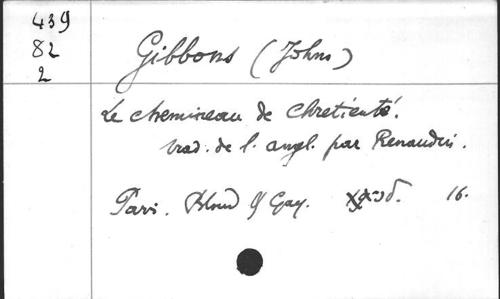 439
82
2
Gibbons (Johns)
Le chemineau de chretienté.
trad. de l. angl. par Renaudin.
Paris. Bloud & Gay. 16.